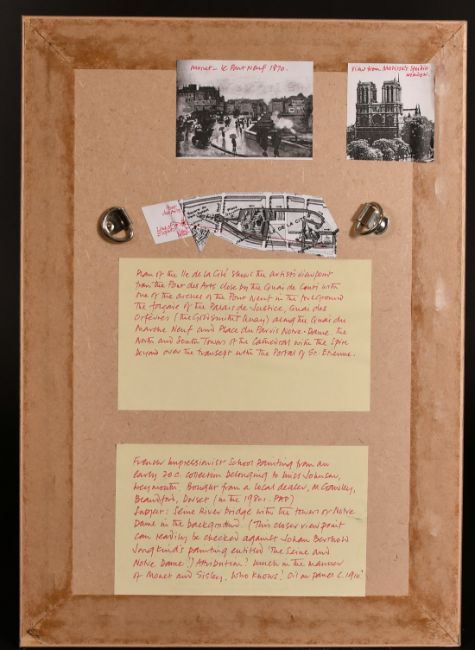 Monet - le Pont Neuf 1870.
View from Matisse's Studio
window.
DE LA CITÉ
Plan of the Ile de la Cité shows the artists viewpoint
from the Pont des Arts close by the Quai de Conti with
one of the arches of the Pont Neuf in the foreground
the façade of the Palais de Justice, Quai des
Orfèvres (the Goldsmiths Quay) along the Quai du
Marché Neuf and Place du Parvis Notre-Dame. the
North and South Towers of the Cathedral with the Spire
beyond over the transept with the Portal of St. Etienne.
French Impressionist School painting from an
early 20 C. collection belonging to Miss Johnson,
Weymouth. Bought from a local dealer, M.
Beaminster, Dorset (in the 1980s.
Subject: Seine River bridge with the towers of Notre
Dame in the background. (This closer viewpoint
can readily be checked against Johan Berthold
Jongkind's painting entitled 'The Seine and
Notre Dame'.) Attribution? Much in the manner
of Monet and Sisley, who knows! Oil on panel C. 1910'